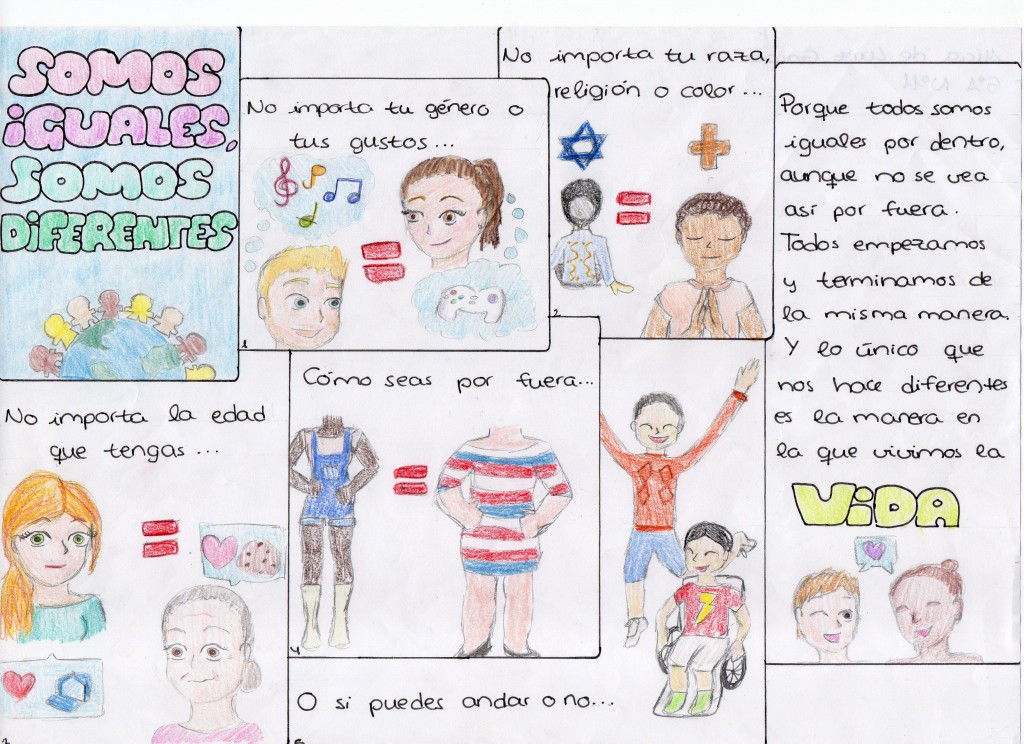 SOMOS
iGUALES,
SOMOS
DiFERENTES
No importa tu género o
tus gustos...
1
No importa tu raza,
religión o color...
2
No importa la edad
que tengas...
3
Cómo seas por fuera...
4
O si puedes andar o no...
5
Porque todos somos
iguales por dentro,
aunque no se vea
así por fuera.
Todos empezamos
y terminamos de
la misma manera.
Y lo único que
nos hace diferentes
es la manera en
la que vivimos la
ViDA